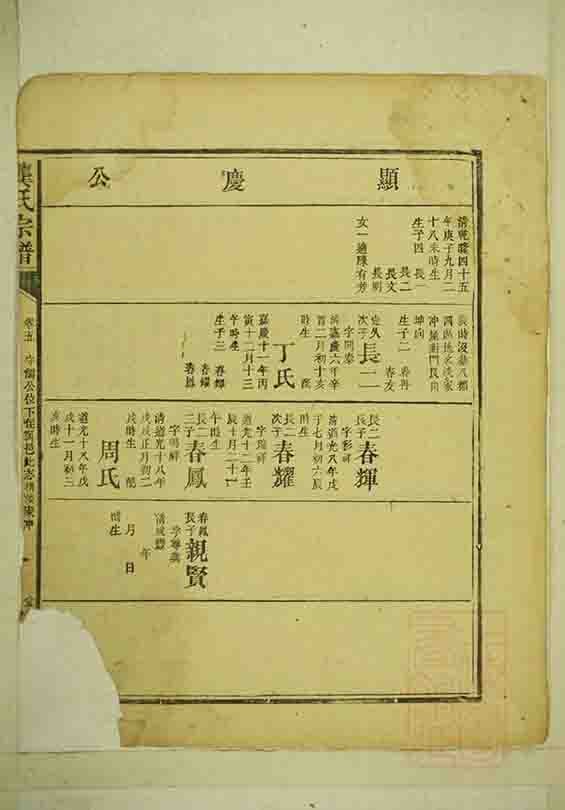 顯慶公
清乾隆四十五
年庚子九月二
十八未時生
生子四 長一
長二
長文
長則
女一適陳有芳
長時沒葬八都
冲屋側門艮向
坤向
生子二 春再
春友
次子長二
字同泰
清嘉慶六年辛
酉二月初十亥
時生
丁氏
嘉慶十一年丙
寅十二月十三
午時生
生子三 春輝
春耀
春鳳
長二長子春輝
字彩祥
清道光八年戊
子七月初六辰
時生
長二次子春耀
字瑞祥
道光十二年壬
辰十月二十一
午時生
長二三子春鳳
字鳴祥
清道光十八年
戊戌正月初二
戌時生
周氏
道光十八年戊
戌十一月初三
時生
春鳳長子親賢
清咸豐
年
月 日
時生
龔氏宗譜
卷五